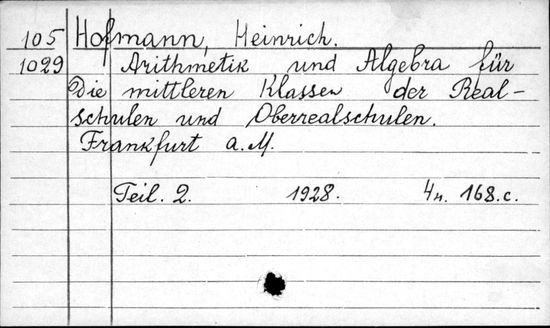 105 Hofmann, Heinrich.
1029 Arithmetik und Algebra für
Die mittleren Klassen der Real-
schulen und Oberrealschulen.
Frankfurt a.M.
Teil. 2. 1928. 4н. 168.c.